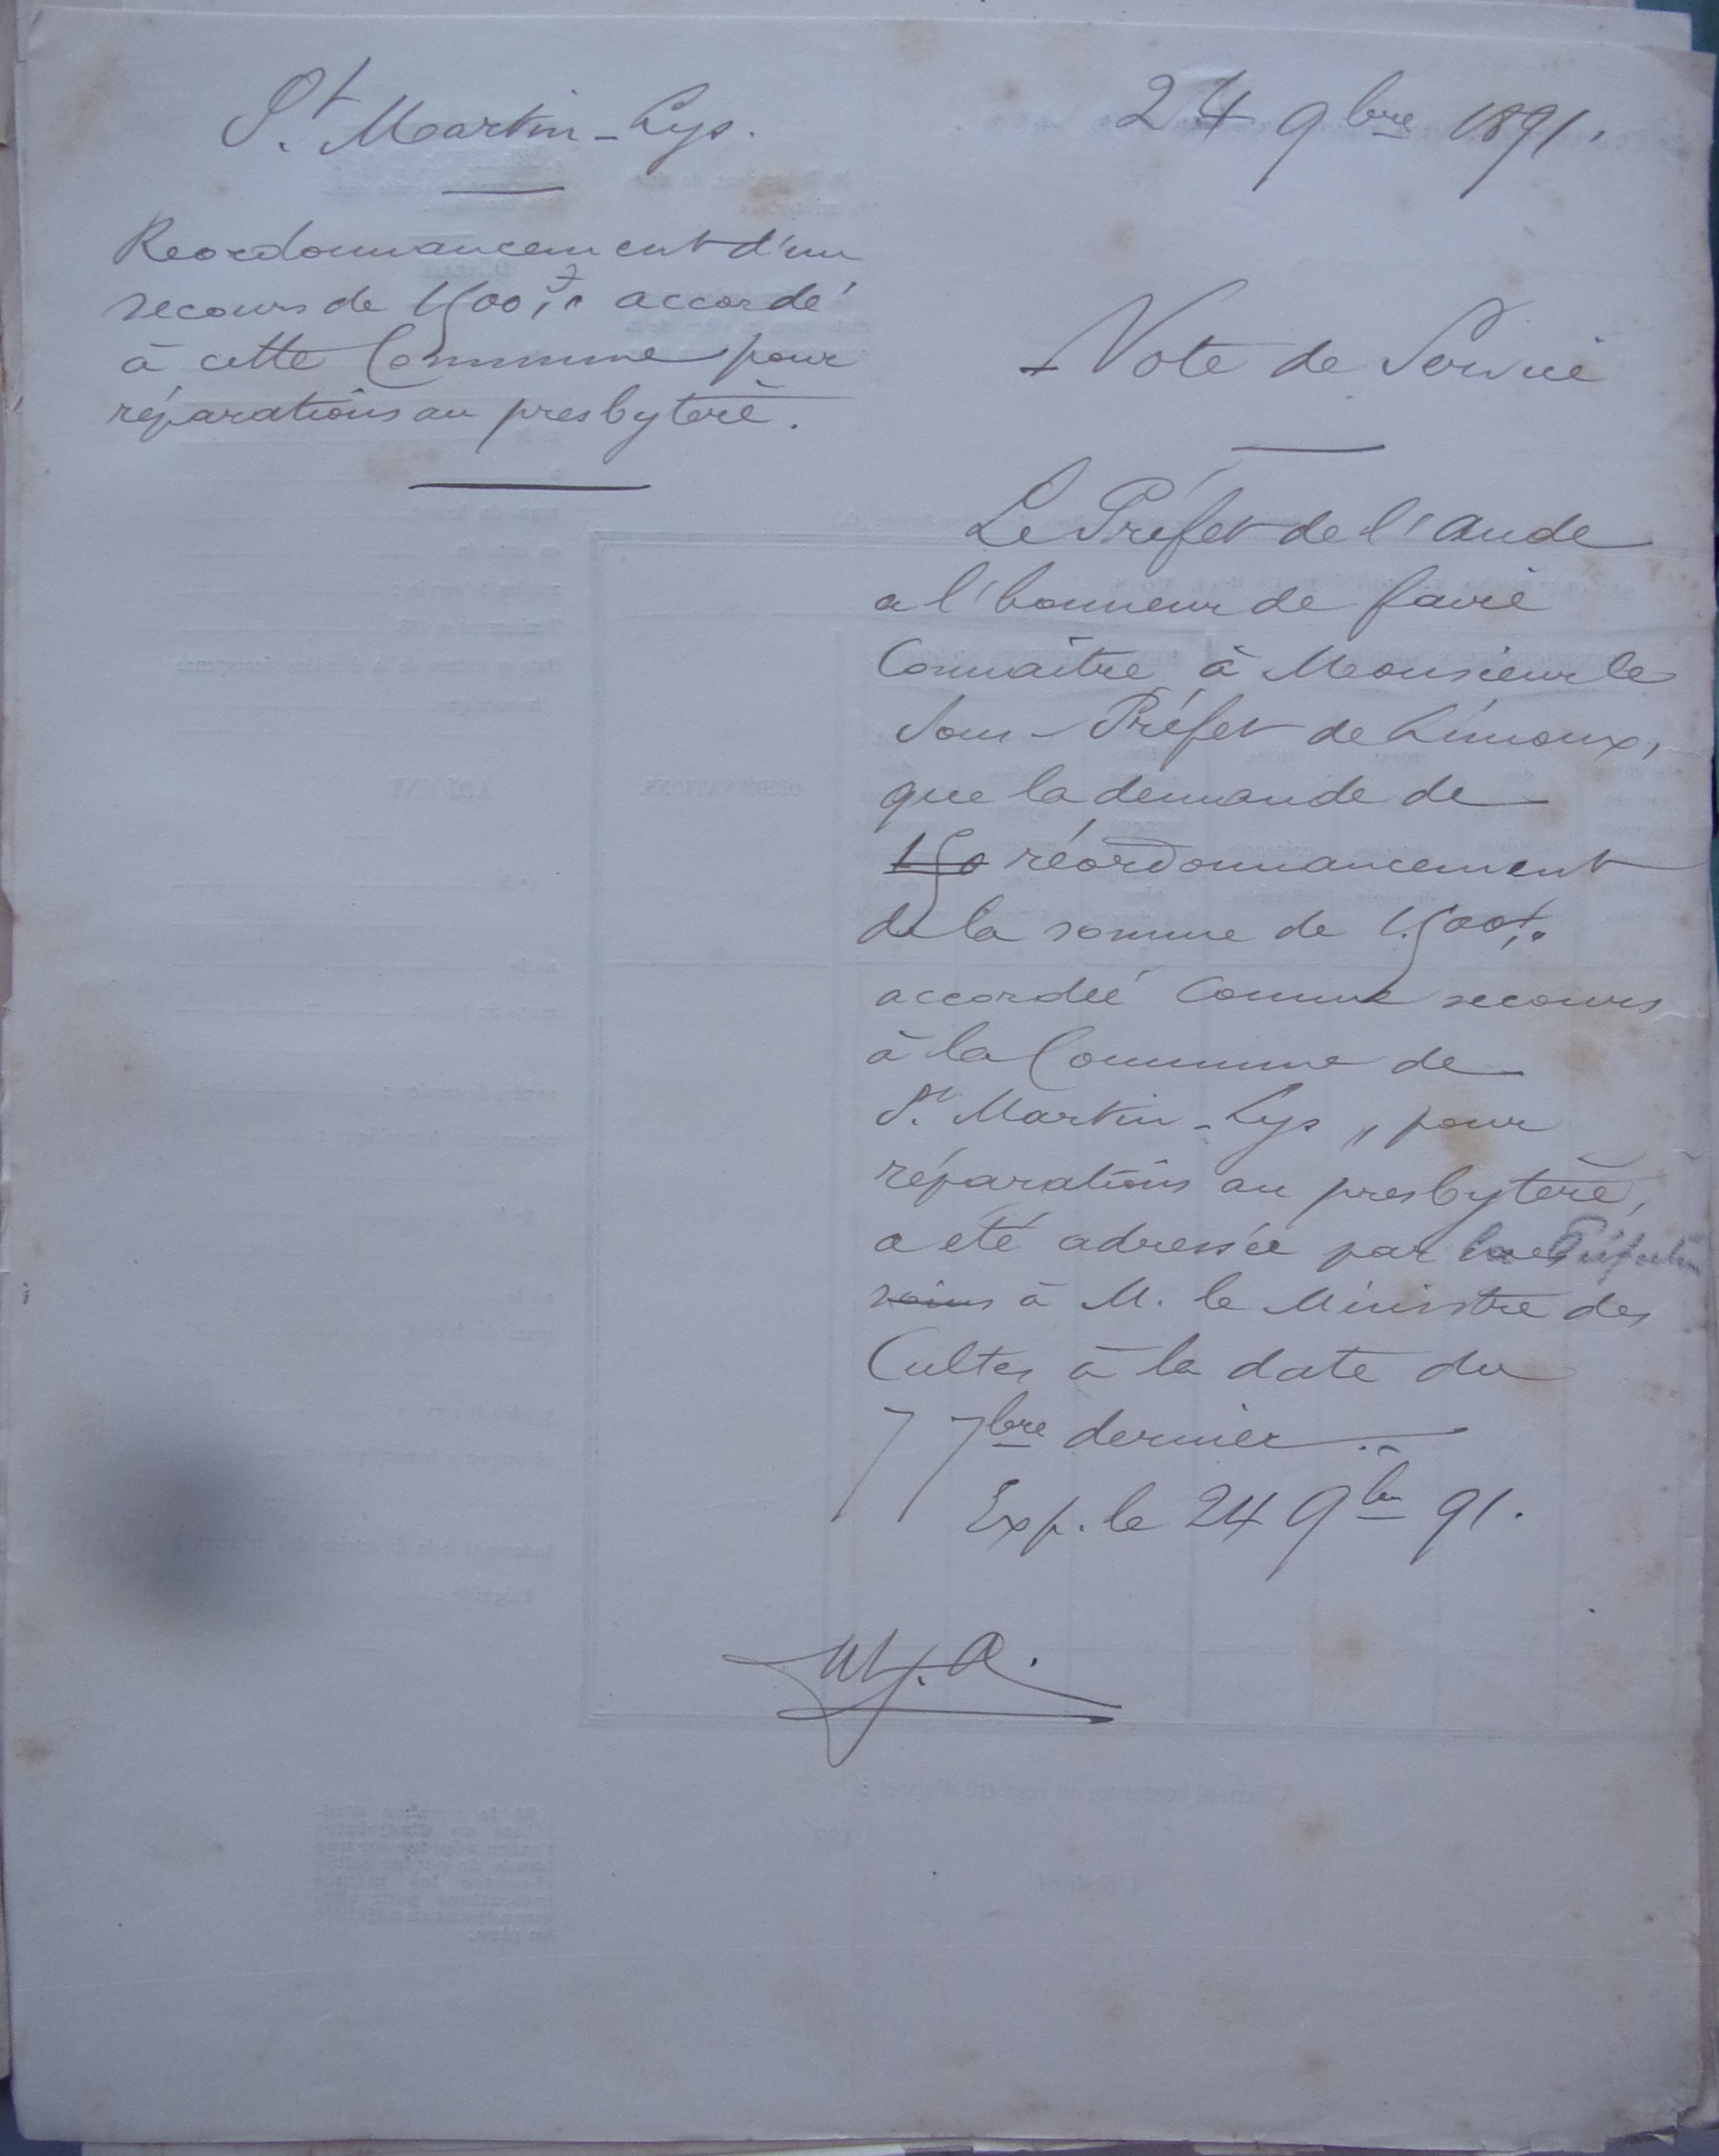 St Martin-Lys.
Reordonnancement d'un
secours de 1500f,, accordé
à cette Commune pour
réparations au presbytère.
24 9bre 1891.
Note de Service
Le Préfet de l'Aude
a l'honneur de faire
Connaître à Monsieur le
Sous-Préfet de Limoux,
que la demande de
150 réordonnancement
de la somme de 1500f,,
accordée comme secours
à la Commune de
St Martin-Lys, pour
réparations au presbytère,
a été adressée par Préfecture
soins à M. le Ministre des
Cultes à la date du
7 7bre dernier.
Exp. le 24 9bre 91.